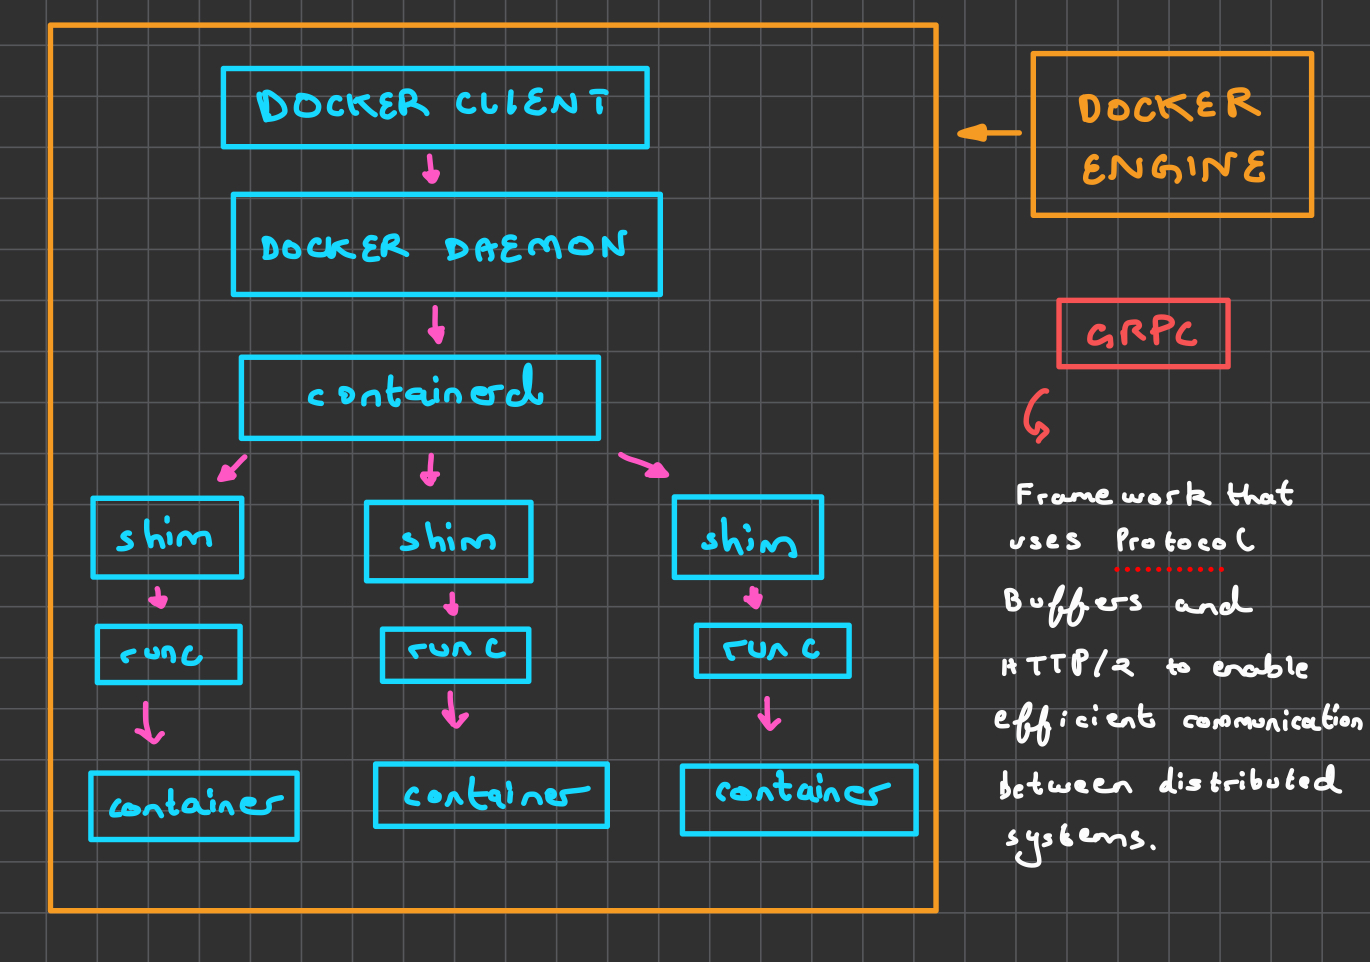 DOCKER CLIENT
DOCKER DAEMON
containerd
shim shim shim
runc runc runc
container container container
DOCKER
ENGINE
GRPC
Framework that
uses Protocol
Buffers and
HTTP/2 to enable
efficient communication
between distributed
systems.